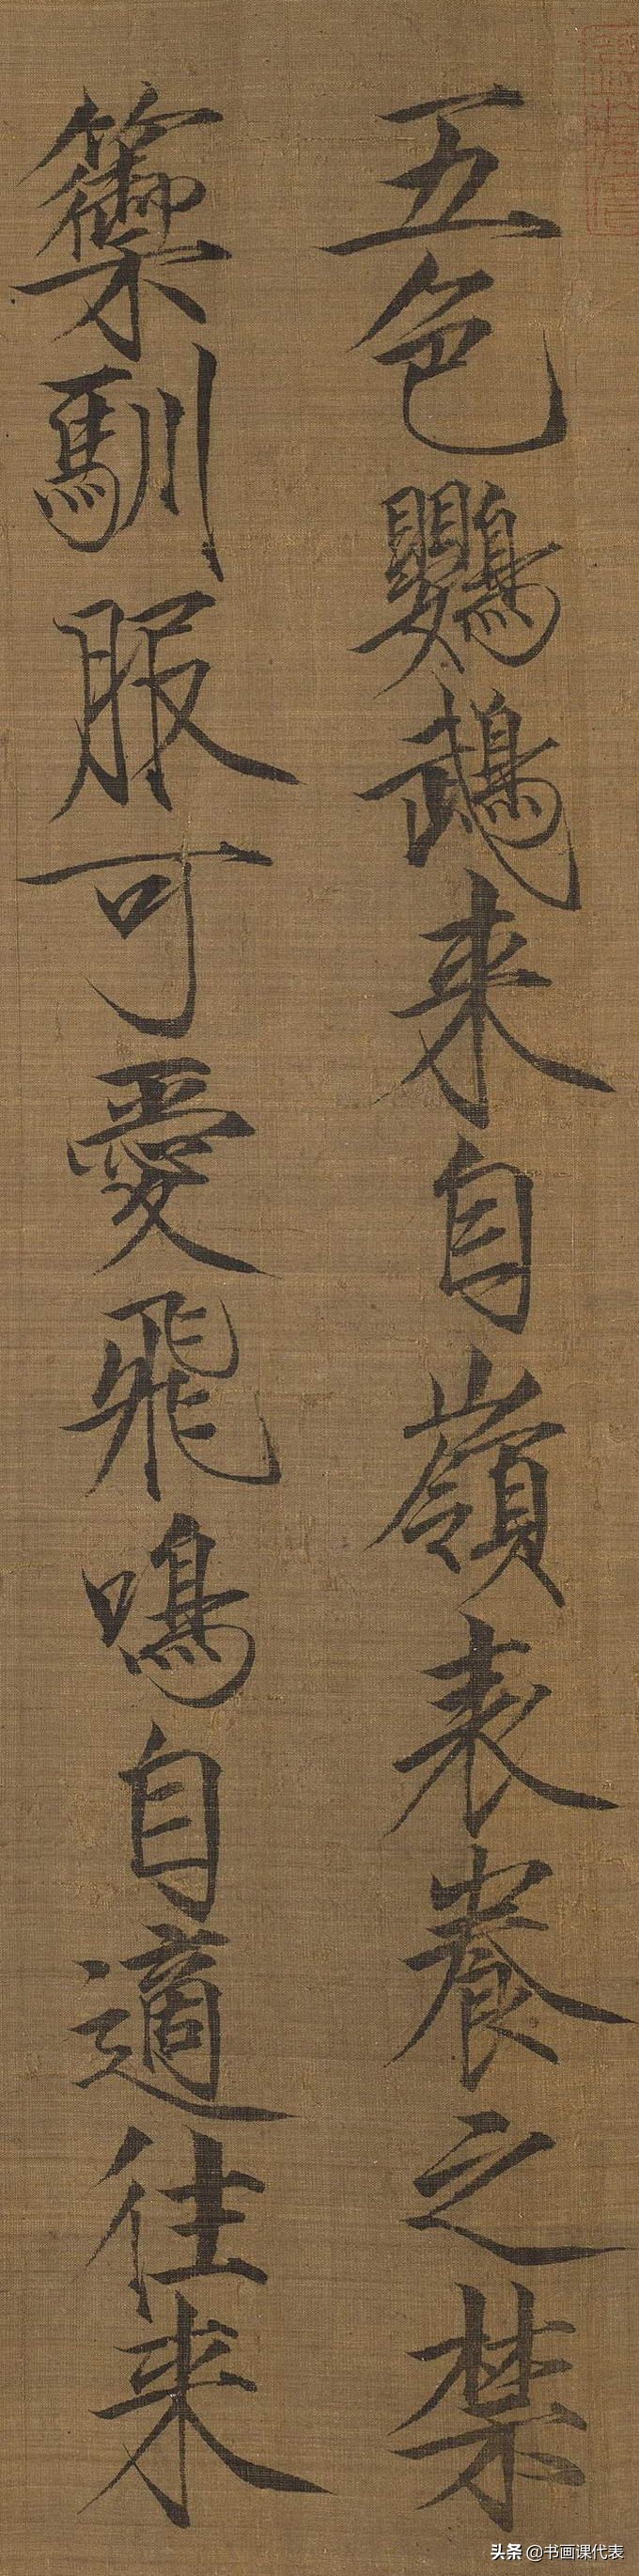 五色鸚鵡来自嶺表養之禁
籞馴服可愛飛鳴自適往来
头条 @书画课代表